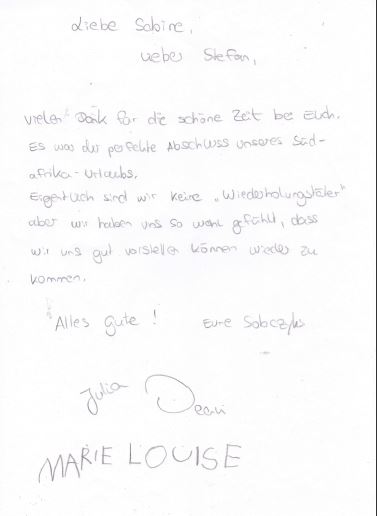 Liebe Sabine,
lieber Stefan,
vielen Dank für die schöne Zeit bei Euch.
Es war der perfekte Abschluss unseres Süd-
afrika-Urlaubs.
Eigentlich sind wir keine „Wiederholungstäter"
aber wir haben uns so wohl gefühlt, dass
wir uns gut vorstellen können wieder zu
kommen.
Alles Gute ! Eure Sobczyks
Julia
MARIE LOUISE